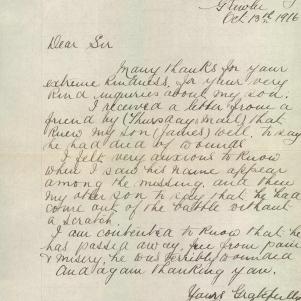 Oct 13th 1916
Dear Sir
Many thanks for your
extreme kindness, for your very
kind inquiries about my son.
I received a letter from a
friend by (Thursdays mail) that
knew my son (James) well, to say
he had died of wounds
I felt very anxious to know
when I saw his name appear
among the missing, and then
my other son to say that he had
come out of the battle without
a scratch.
I am contented to know that he
has passed away, free from pain
& misery, he was terribly wounded
And again thanking you.
Yours Gratefully